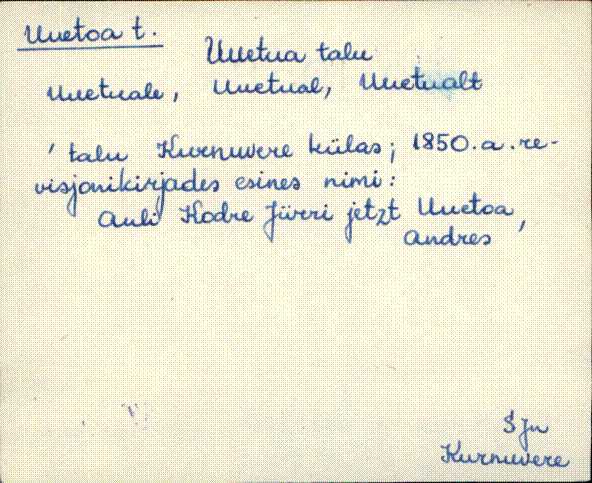 Uuetoa t.
Uuetua talu
Uuetuale, Uuetual, Uuetualt
' talu Kurnuvere külas; 1850.a. re-
visjonikirjades esines nimi:
Auli Kodre Jürri jetzt Uuetoa
Andres '
SJn
Kurnuvere